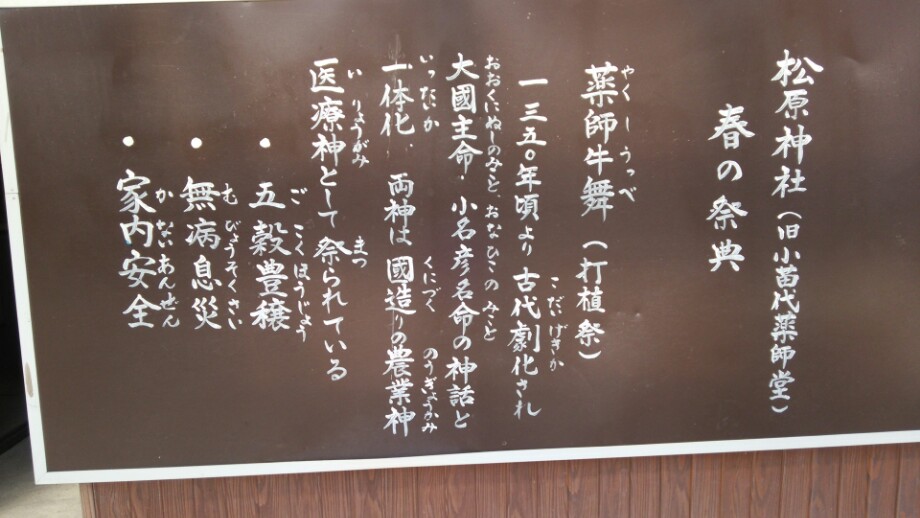 松原神社（旧小苗代薬師堂）
春の祭典
やくしうっべ
薬師牛舞（打植祭）
こだいげきか
一三五〇年頃より古代劇化され
おおくにぬしのみこと おなひこのみこと
大國主命・小名彦名命の神話と
いったいか くにづく のうぎょうかみ
一体化 両神は國造りの農業神
いりょうがみ まつ
医療神として祭られている
ごこくほうじょう
・五穀豊穣
むびょうそくさい
・無病息災
かないあんぜん
・家内安全